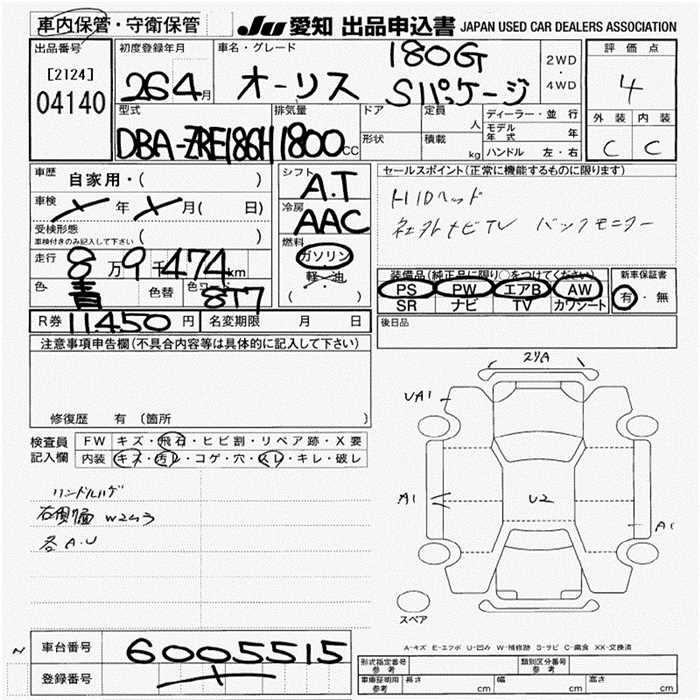 車内保管・守衛保管
JU 愛知 出品申込書 JAPAN USED CAR DEALERS ASSOCIATION
出品番号
[2124]
04140
初度登録年月
26 4月
車名・グレード
オーリス
180G
Sパッケージ
2WD
・
4WD
評価点
4
外装 内装
C C
型式
DBA-ZRE186H
排気量
1800cc
ドア
形状
定員
人
積載
kg
ディーラー・並行
モデル年式 年
ハンドル 左・右
車歴 自家用・( )
車検 年 月( 日)
受検形態
車検付きのみ記入して下さい ( )
走行
8万9千474km
色
青
色替
カラーNo.
8T7
シフト
A.T
冷房
AAC
燃料
ガソリン
軽・油
( )
R券 11450円
名変期限 月 日
セールスポイント(正常に機能するものに限ります)
HIDヘッド
社外ナビTV バックモニター
装備品(純正品に限り○をつけてください)
PS PW エアB AW
SR ナビ TV カワシート
新車保証書
有・無
後日品
注意事項申告欄(不具合内容等は具体的に記入して下さい)
修復歴 有 (箇所 )
検査員記入欄
FW キズ・飛石・ヒビ割・リペア跡・X要
内装 キズ・汚レ・コゲ・穴・スレ・キレ・破レ
ハンドルハゲ
右側面 W2ムラ
各A.U
2リA
UA1
A1
U2
A1
スペア
A-キズ E-エクボ U-凹み W-補修跡 S-サビ C-腐食 XX-交換済
~
車台番号 6005515
登録番号
形式指定番号
参考
類別区分番号
参考
車庫証明用
参考
長さ cm
幅 cm
高さ cm